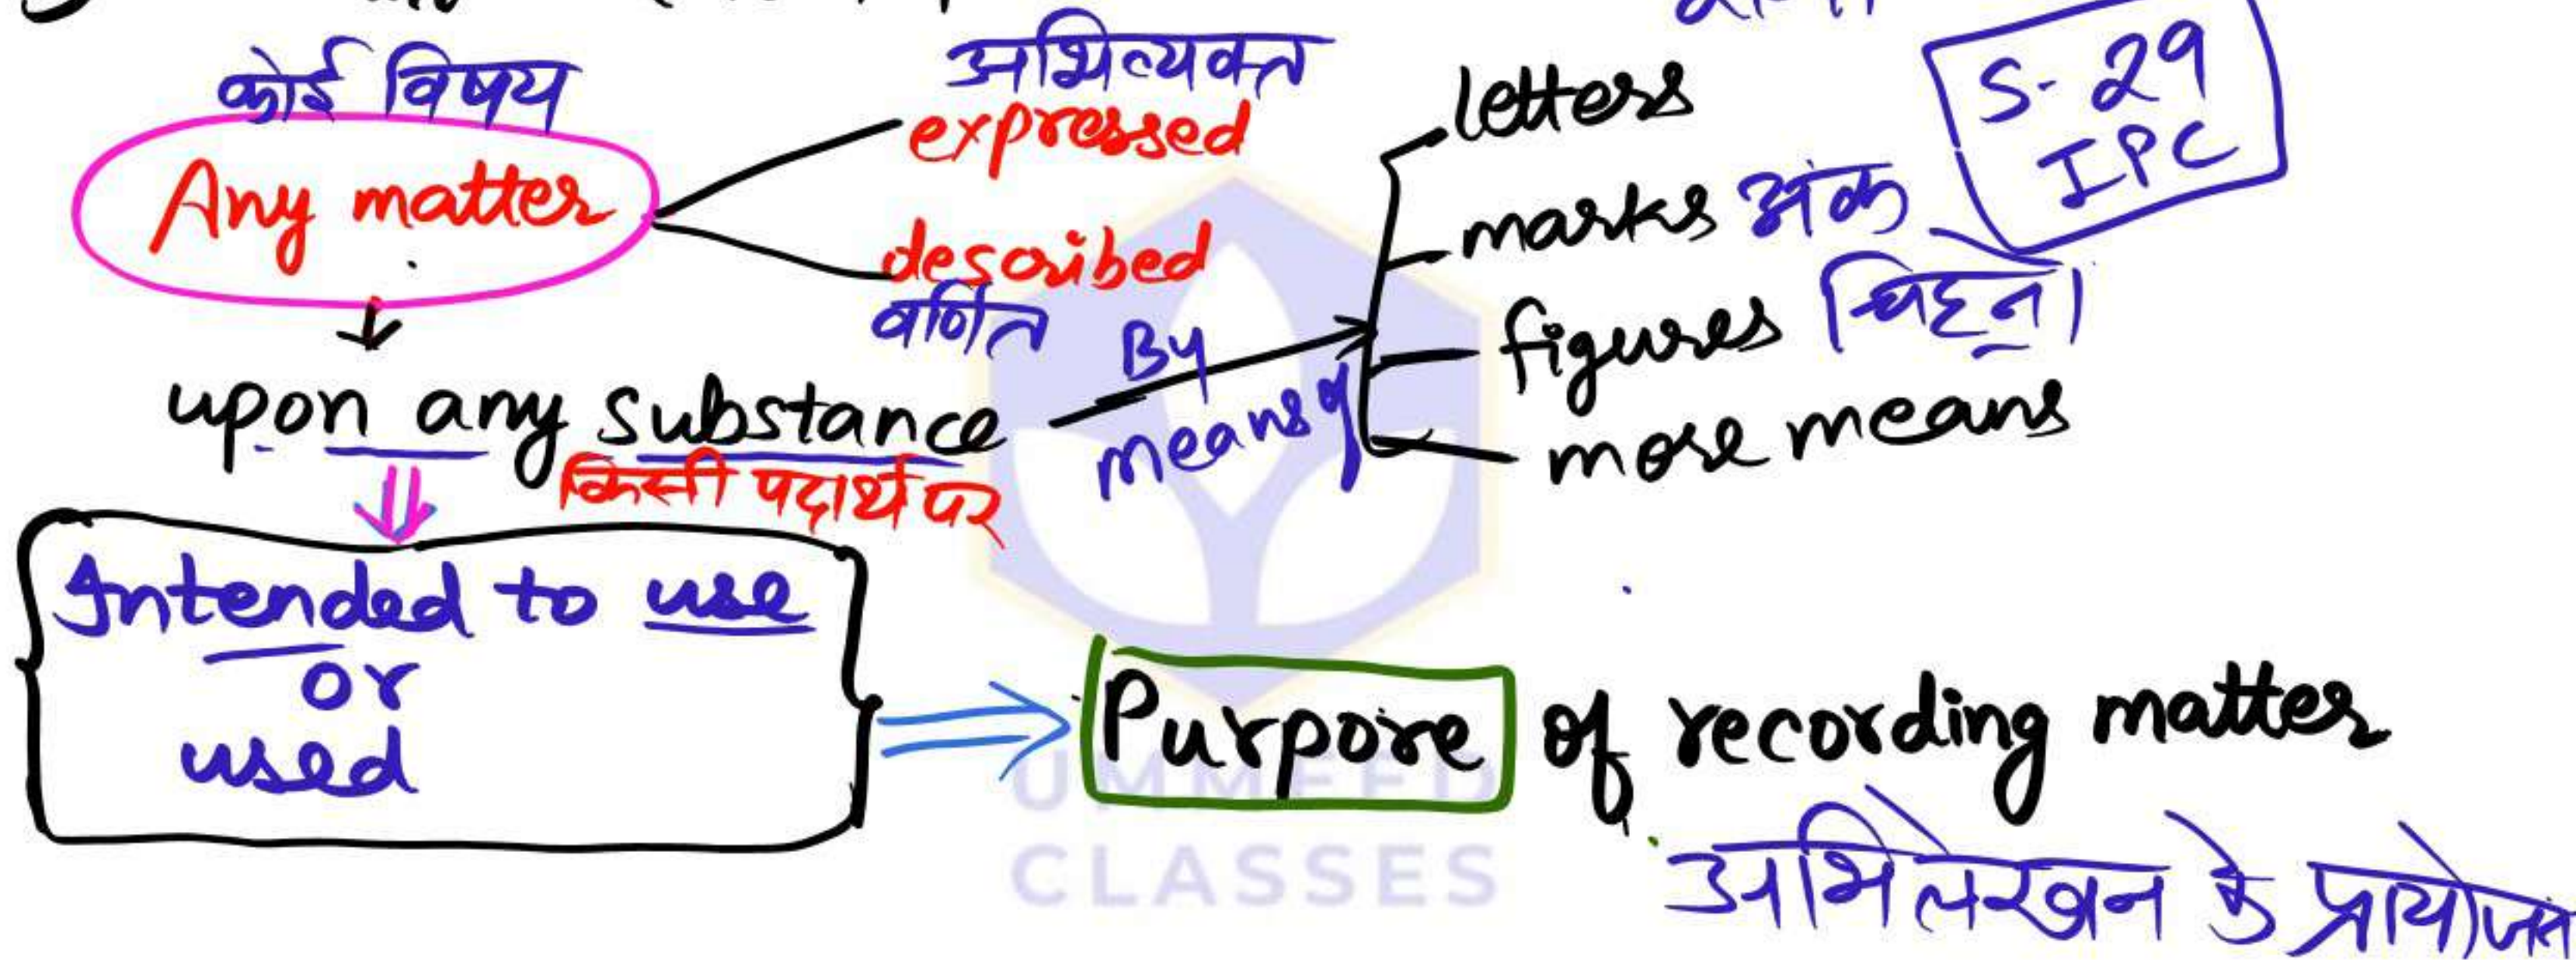 कोई विषय
Any matter
अभिव्यक्त
expressed
described
वर्णित
letters
marks अंक
figures चिह्न।
more means
S-29
IPC
upon any substance
किसी पदार्थ पर
By
means of
Intended to use
or
used
Purpose of recording matter
अभिलेखन के प्रायोजन
UMMEED
CLASSES